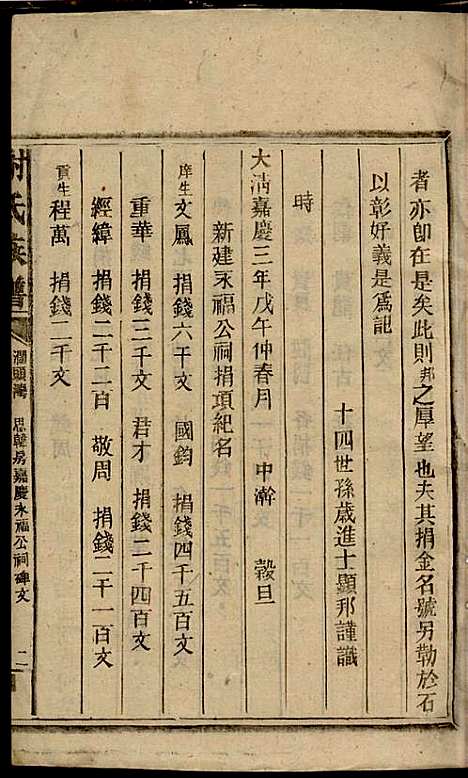 者亦卽在是矣此則邦之厚望也夫其捐金名號另勒於石
以彰好義是爲記
十四世孫歲進士顯邦謹識
時
大淸嘉慶三年戊午仲春月 中澣 穀旦
新建永福公祠捐項紀名
庠生文鳳 捐錢六千文 國鈞 捐錢四千五百文
重華 捐錢三千文 君才 捐錢二千四百文
經緯 捐錢二千二百 敬周 捐錢二千一百文
貢生程萬 捐錢二千文
氏族譜 澗頭灣 思韓房嘉慶永福公祠碑文 二